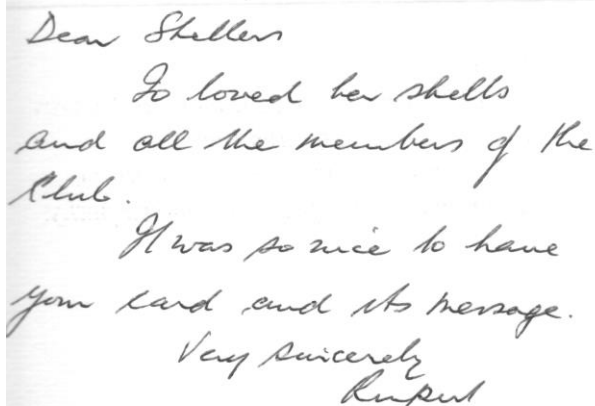 Dear Shellers
Jo loved her shells
and all the members of the
Club.
It was so nice to have
your card and its message.
Very sincerely
Rupert